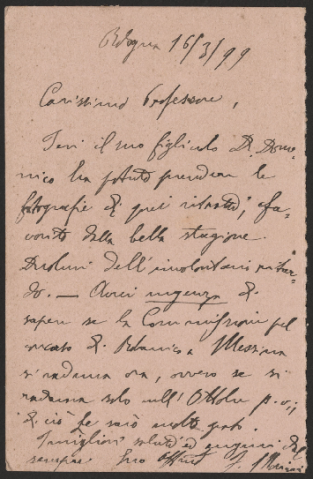 Bologna 16/3/99
Carissimo Professore,
Ieri il suo figliuolo D. Dome-
nico ha potuto prendere le
fotografie di quei ritratti, fa-
vorito dalla bella stagione.
Duolmi dell'involontario ritar-
do. — Avrei urgenza di
sapere se la Commissione pel
vacato di Botanica a Messina
si raduna ora, ovvero se si
raduna solo nell'Ottobre p.v.;
di ciò le sarò molto grato.
I migliori saluti ed auguri dal
sempre Suo affmo